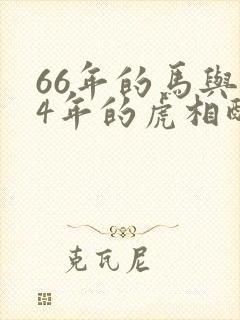 66年的馬與
4年的虎相
克瓦尼